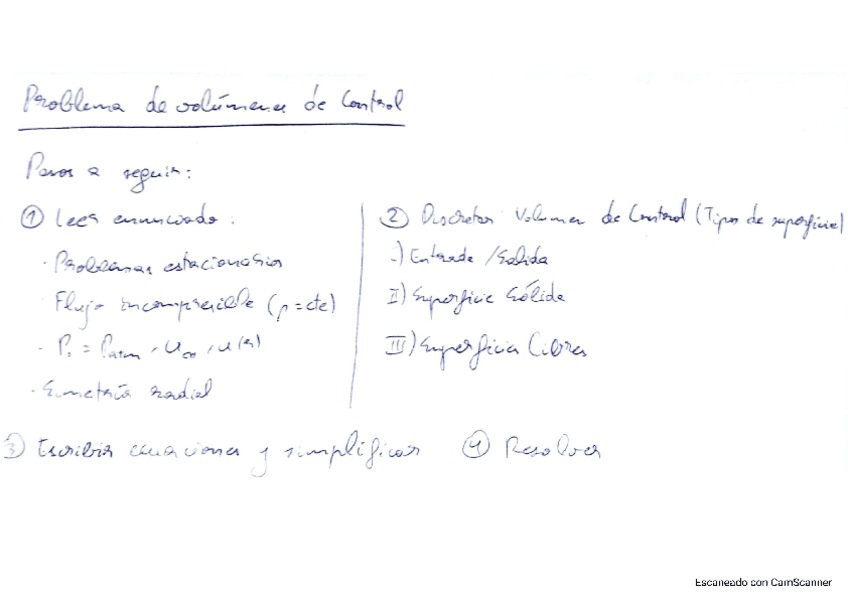 Problema de volúmenes de Control
Pasos a seguir:
① Leer enunciado:
· Problemas estacionarios
Flujo incompresible (ρ = cte)
· P₁ = Patm, u∞, u(r)
· Simetría radial
② Discretar Volumen de Control (Tipos de superficie)
-) Entrada / Salida
II) Superficie Sólida
III) Superficies Libres
③ Escribir ecuaciones y simplificar
④ Resolver
Escaneado con CamScanner